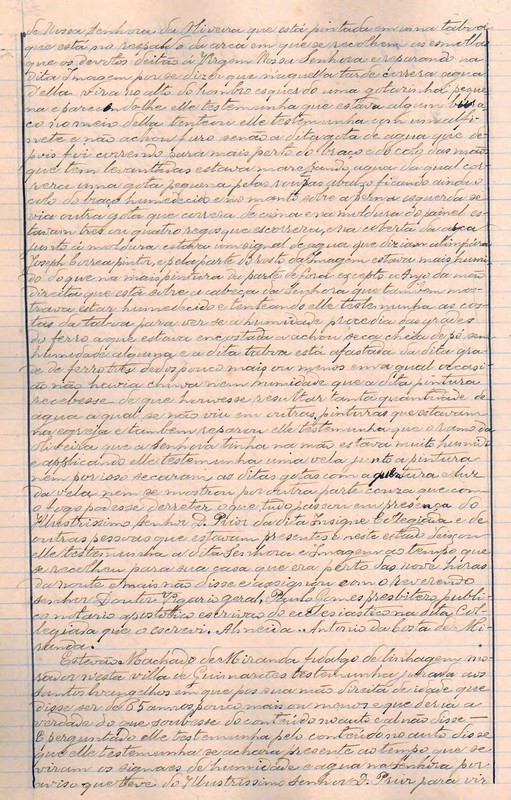 de Nossa Senhora da Oliveira que está pintada em uma taboa
que está no respaldo da arca em que se recolhem as esmolas
que os devotos deitão à Virgem Nossa Senhora e reparando na
dita Imagem por se dizer que n'aquella tarde correra agua
d'ella vira no alto do hombro esquerdo uma gotasinha peque
na e parecendo-lhe elle testemunha que estava algum bura
co no meio d'ella tenteou elle testemunha com um alfi
nete e não achou furo senão a dita gota de agua que de
pois foi correndo para mais perto do braço e do coto das mãos
que tem levantadas estava marejando agua da qual cor
rera uma gota pequena pelas roupas abaixo ficando ainda o
coto do braço humedecido e no manto sobre a perna esquerda se
via outra gota que correra de cima e na moldura do painel es
tavam tres ou quatro regos que escorrera, e na coberta da arca
junto á moldura estava um signal de agua que diziam alimpára
Joseph Correa pintor, e pela parte do rosto da Imagem estava mais humi
do do que na mais pintura da parte de fóra excepto o Anjo da mão
direita que está sobre a cabeça da Senhora que tambem mos
trava estar humedecido e tenteando elle testemunha as cos
tas da taboa para ver se a humidade procedia das grades
do ferro a que estava encostada a achou seca cheda de pó sem
humidade alguma e a dita taboa está afastada da dita gra
de de ferro tres dedos pouco mais ou menos em a qual occasi
ão não havia chuva nem humidade que a dita pintura
recebesse de que houvesse resultar tanta quantidade de
agua a qual se não viu em outras pinturas que estavam
na egreja e tambem reparou elle testemunha que o ramo da
oliveira que a Senhora tinha na mão estava muito humido
e applicando elle testemunha uma vela junto a pintura
nem por isso secaram as ditas gotas com a quentura e luz
da vela nem se mostrou por outra parte cousa que com
o fogo podesse derreter o que tudo passou em presença do
Illustrissimo Senhor D. Prior da dita Insigne Collegiada e de
outras pessoas que estavam presentes e neste estado deixou
elle testemunha a dita Senhora e Imagem ao tempo que
se recolheu para sua casa que era perto das nove horas
da noute e mais não disse e assignou com o reverendo
senhor Doutor Vigario geral, Paulo Gomes presbitero publi
co notario apostolico escrivão do ecclesiastico na dita Col
legiada que o escrevi, Almeida. Antonio da Costa de Mi
randa.
Estevão Machado de Miranda fidalgo de linhagem mo
rador nesta villa de Guimarães testemunha jurada aos
santos evangelhos em que pos sua mão direita de idade que
disse ser de 65 annos pouco mais ou menos e que diria a
verdade do que soubesse do conteúdo no auto e al não disse —
E perguntado elle testemunha pelo conteúdo no auto disse
que elle testemunha se achara presente ao tempo que se
viram os signaes de humidade e agua na Senhora por
aviso que teve do Illustrissimo Senhor D. Prior para vir